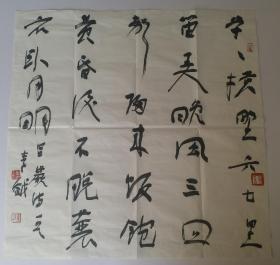 草横野六七里
笛弄晚风三四
声归来饭饱
黄昏後不脱蓑
衣卧月明 吕岩诗
李铎